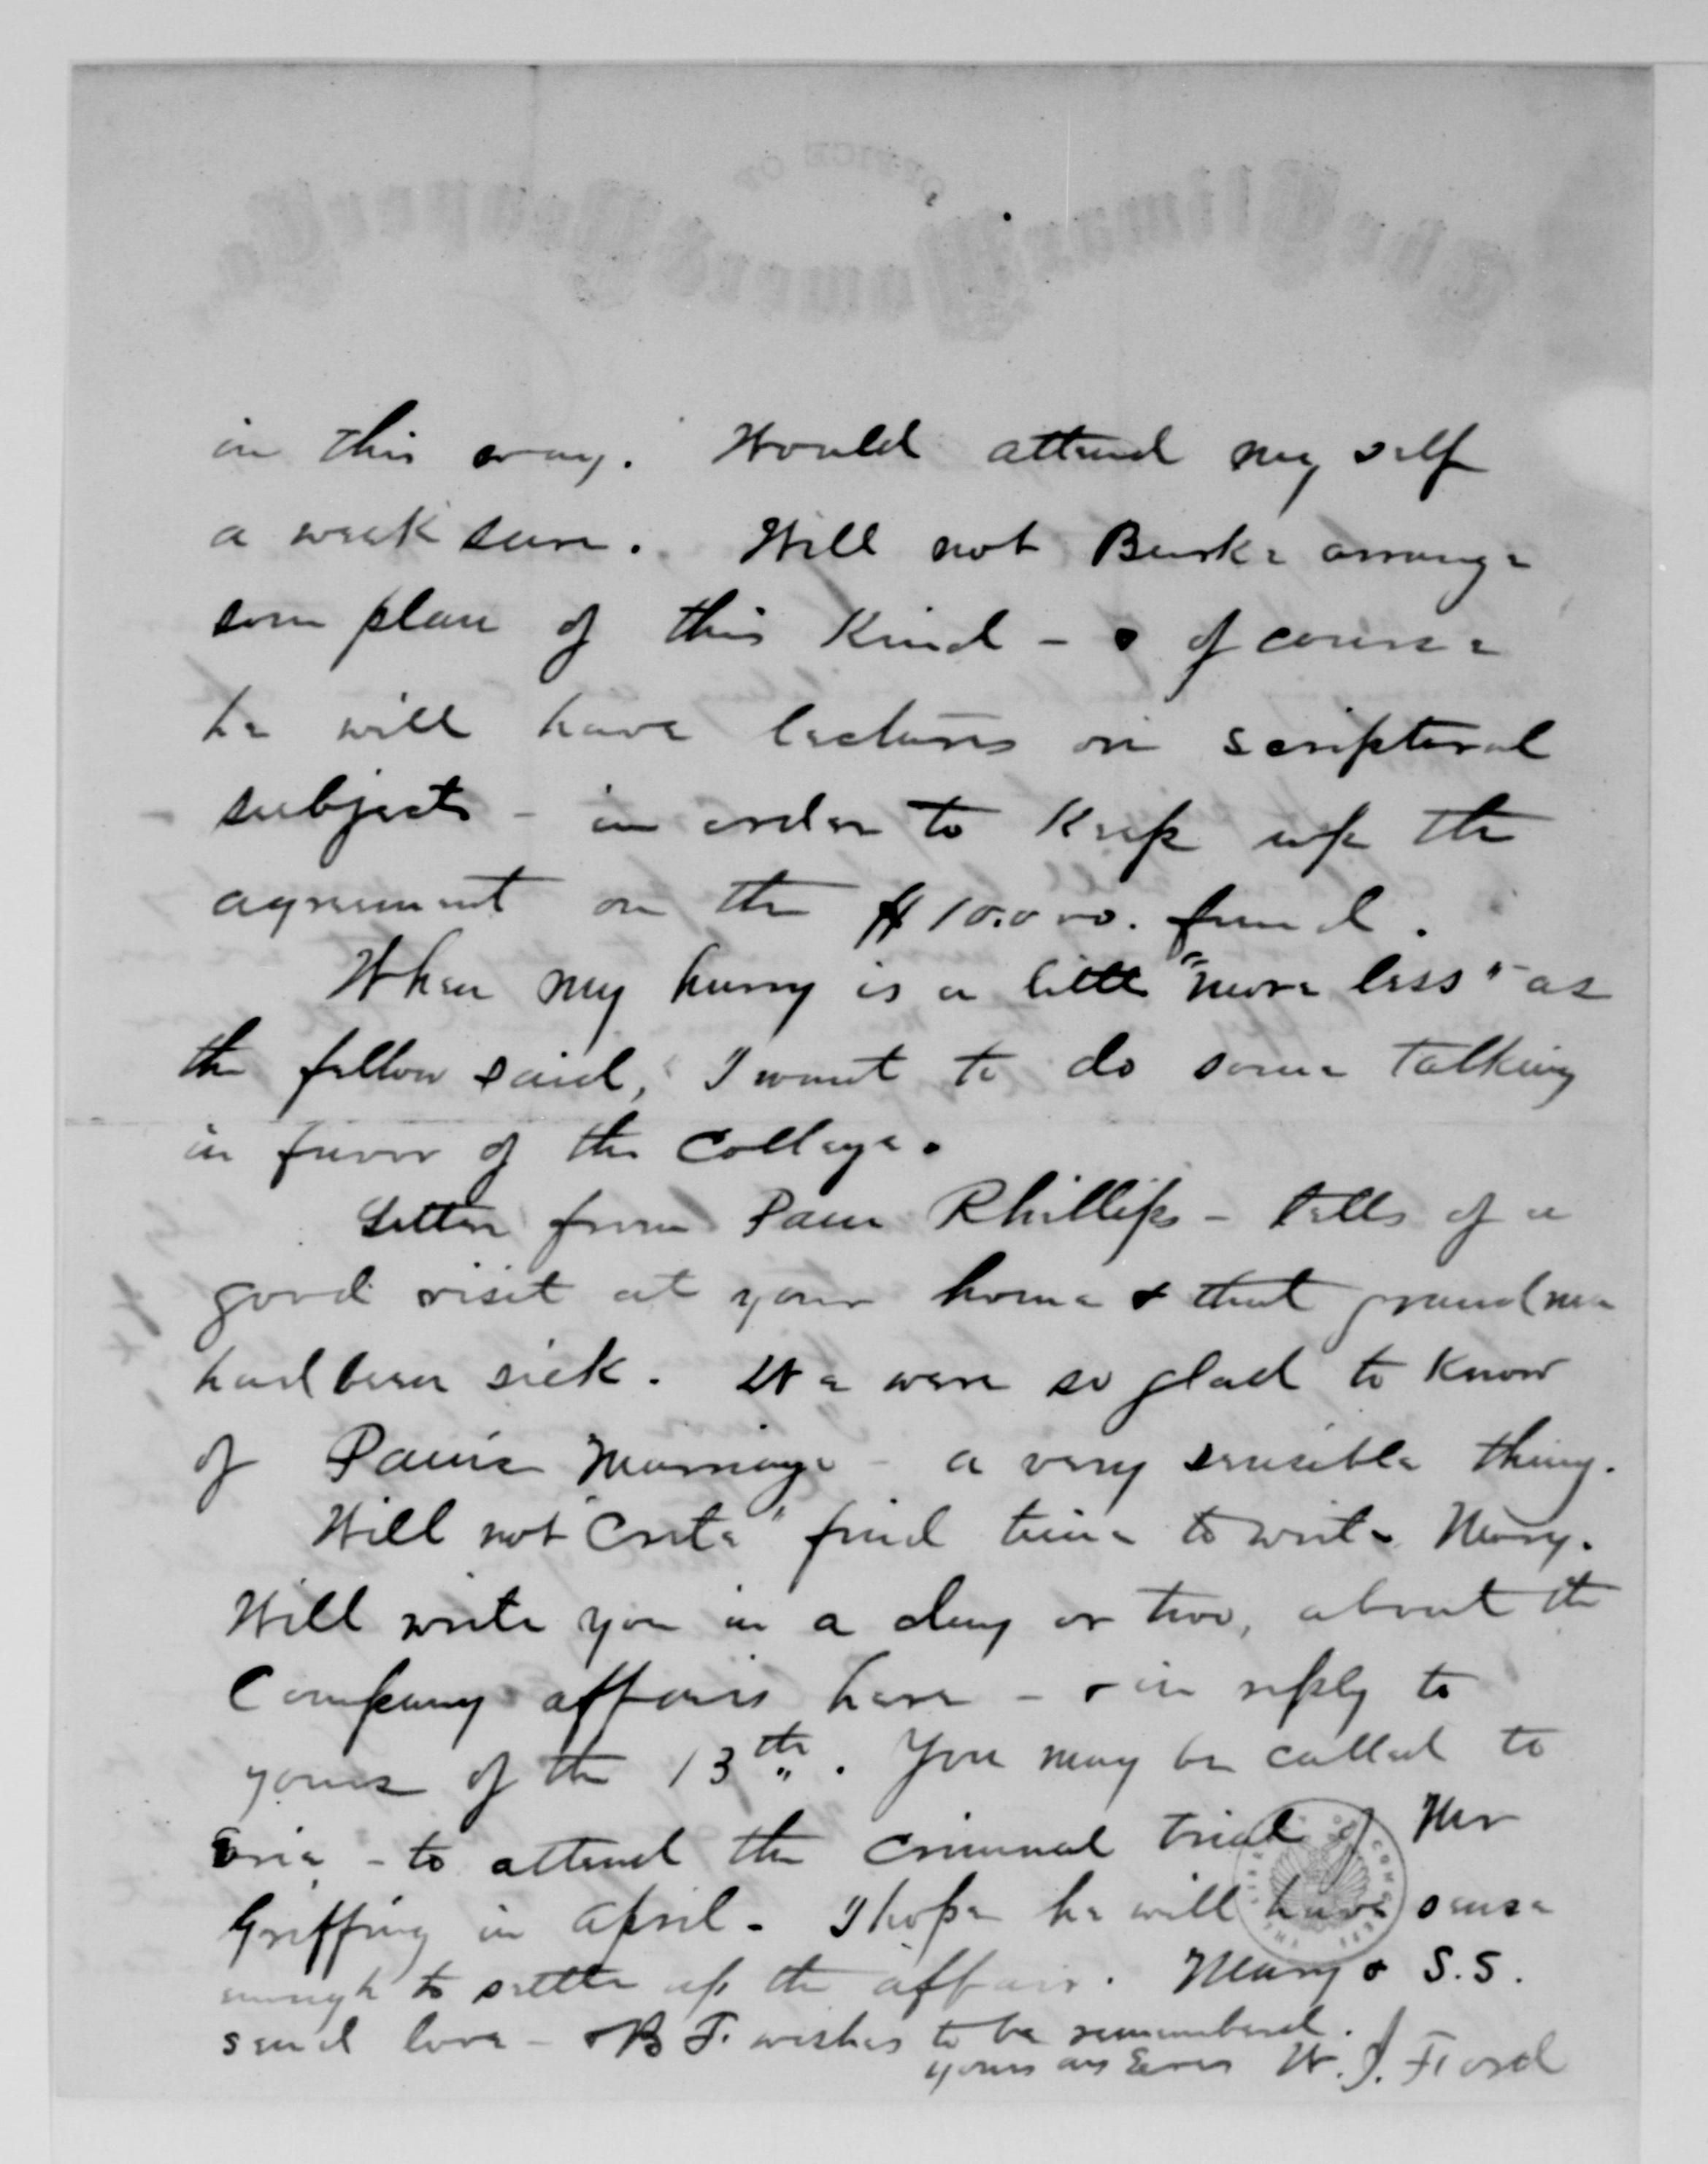 in this way. Would attend my self
a week sure. Will not Burke arrange
some plan of this Kind - & of course
he will have lectures on scriptural
subjects - in order to Keep up the
agreement on the $10.000. fund.
When my hurry is a little "more less" - as
the fellow said, I want to do some talking
in favor of the College.
Letter from Pam Phillips - tells of a
good visit at your home & that grandma
had been sick. We were so glad to Know
of Marriage - a very sensible thing.
Will not "Crete" find time to write Mary.
Will write you in a day or two, about the
Company affairs here - & in reply to
yours of the 13th. You may be called to
Erie - to attend the Criminal trial of Mr
Griffing in April - I hope he will have sense
enough to settle up the affair. Mary & S.S.
send love - & B F. wishes to be remembered.
yours as Ever W. J. Ford